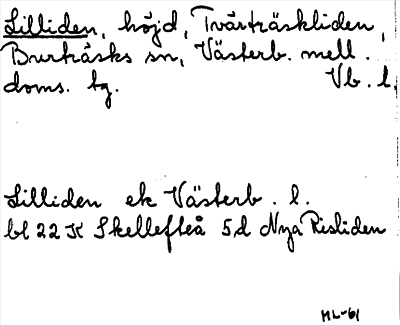 Lilliden, höjd, Tvärträskliden,
Burträsks sn, Västerb. mell.
doms. tg. Vb. l.
Lilliden ek Västerb. l.
bl 22 K Skellefteå 5d Nya Risliden
ML-61